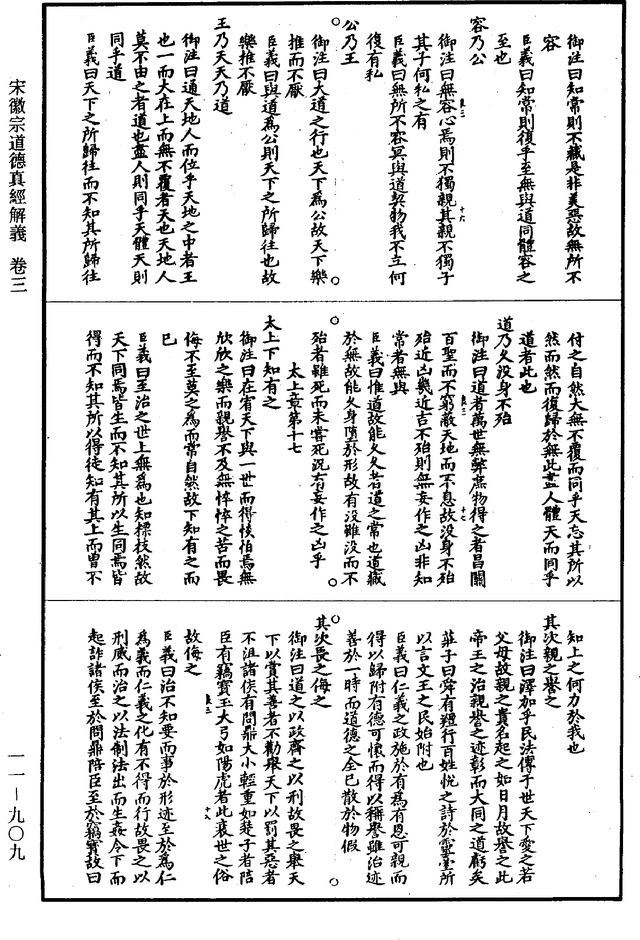 宋徽宗道德真經解義　卷三
一一—九〇九
御注曰知常則不藏是非美惡故無所不
容
臣義曰知常則復乎至無與道同體容之
至也
容乃公
御注曰無容心焉則不獨親其親不獨子
其子何私之有
臣義曰無所不容冥與道契物我不立何
復有私
公乃王
御注曰大道之行也天下為公故天下樂
推而不厭
臣義曰與道為公則天下之所歸往也故
樂推不厭
王乃天天乃道
御注曰通天地人而位乎天地之中者王
也一而大在上而無不覆者天也天地人
莫不由之者道也盡人則同乎天體天則
同乎道
臣義曰天下之所歸往而不知其所歸往
付之自然大無不覆而同乎天忘其所以
然而然而復歸於無此盡人體天而同乎
道者此也
道乃久沒身不殆
御注曰道者萬世無弊庶物得之者昌關
百聖而不窮蔽天地而不息故沒身不殆
殆近凶幾近吉不殆則無妄作之凶非知
常者無與
臣義曰惟道故能久久者道之常也道藏
於無故能久身墮於形故有沒雖沒而不
殆者雖死而未嘗死況有妄作之凶乎
太上章第十七
太上下知有之
御注曰在宥天下與一世而得惔怕焉無
欣欣之樂而親譽不及無悴悴之苦而畏
侮不至莫之為而常自然故下知有之而
已
臣義曰至治之世上無為也如標枝然故
天下同焉皆生而不知其所以生同焉皆
得而不知其所以得徒知有其上而曾不
知上之何力於我也
其次親之譽之
御注曰澤加乎民法傳于世天下愛之若
父母故親之貴名起之如日月故譽之此
帝王之治親譽之迹彰而大同之道虧矣
莊子曰舜有羶行百姓悅之詩於靈臺所
以言文王之民始附也
臣義曰仁義之政施於有為有恩可親而
得以歸附有德可懷而得以稱譽雖治迹
善於一時而道德之全已散於物假
其次畏之侮之
御注曰道之以政齊之以刑故畏之舉天
下以賞其善者不勸舉天下以罰其惡者
不沮諸侯有問鼎大小輕重如楚子者陪
臣有竊寶玉大弓如陽虎者此衰世之俗
故侮之
臣義曰治不知要而事於形迹至於為仁
為義而仁義之化有不得而行故畏之以
刑威而治之以法制法出而生姦令下而
起詐諸侯至於問鼎陪臣至於竊寶故曰